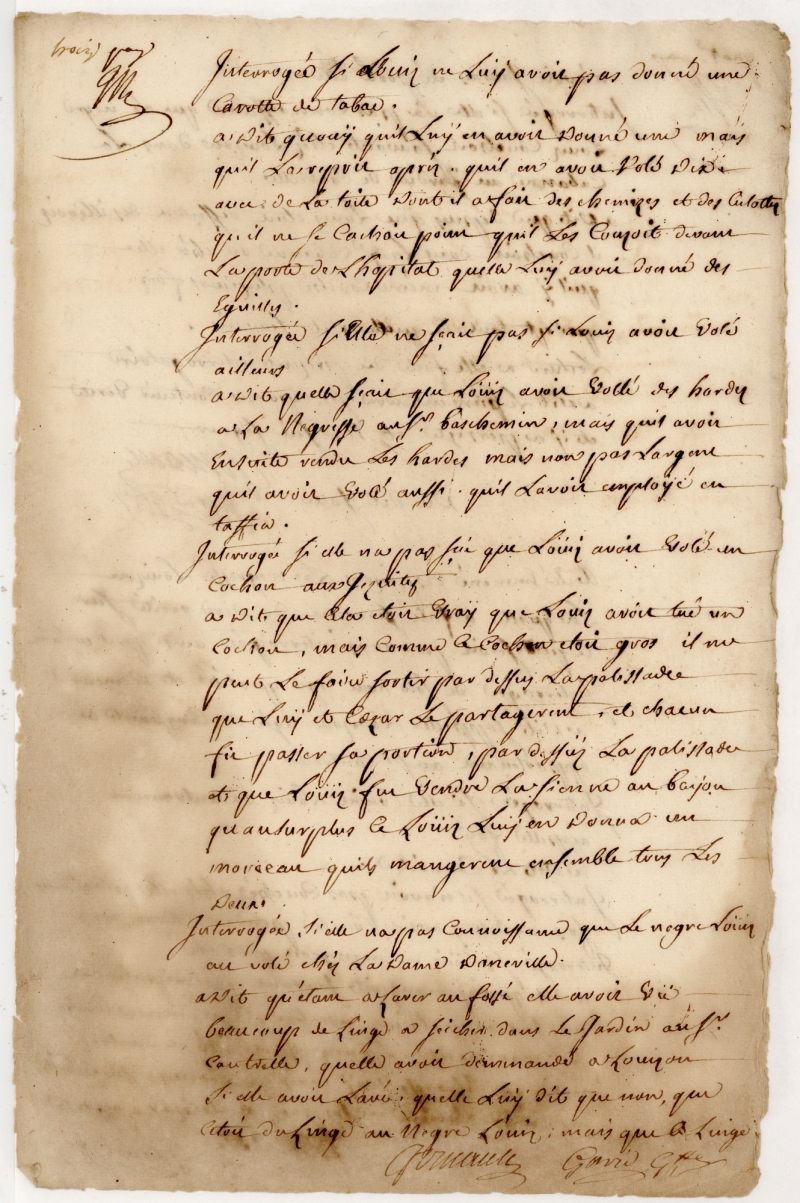 trois pag
Interrogée si Louis ne Luy avoit pas donné une
Carotte de tabac.
a Dit quouy quil Luy en avoit Donné une mais
quil La reprit aprés. quil en avoit Volé Dix
avec de La toile Dont il a fait des chemizes et des Culottes
qu il ne se Cachoit point quil Les Couzoit devant
La porte de Lhopital quelle Luy avoit donné des
Eguilles.
Interrogée si Elle ne sçait pas si Louis avoit Volé
ailleurs
a Dit quelle sçait que Loüis avoit Vollé des hardes
a La Negresse au Sr. baschemin, mais quil avoit
Ensuite rendu Les hardes mais non pas Largent
quil avoit Volé aussi. quil Lavoit employé en
taffia.
Interrogée si elle na pas sçû que Loüis avoit Volé un
Cochon aux Jezuites
a Dit que Cela etoit Vray que Loüis avoit tué un
Cochon, mais Comme Ce Cochon etoit gros il ne
put Le faire sortir par dessus La palissade
que Luy et Cezar Le partagerent, et chacun
fit passer sa portion, par dessus La palissade
et que Loüis fut Vendre La sienne au bayou
quausurplus Ce Loüis Luy en Donna un
morceau quils mangerent ensemble tous Les
Deux.
Interrogée, Si elle na pas Connoissance que Le negre Loüis
ait volé chés La Dame Daneville.
a Dit quétant a Laver au fossé elle avoit Vû
beaucoup de Linge a seicher dans Le Jardin au Sr.
Cantrelle, quelle avoit demmandé a Louizon
Si elle avoit Lavé, quelle Luy dit que non, que
Cétoit du Linge au Negre Loüis, mais que Ce Linge